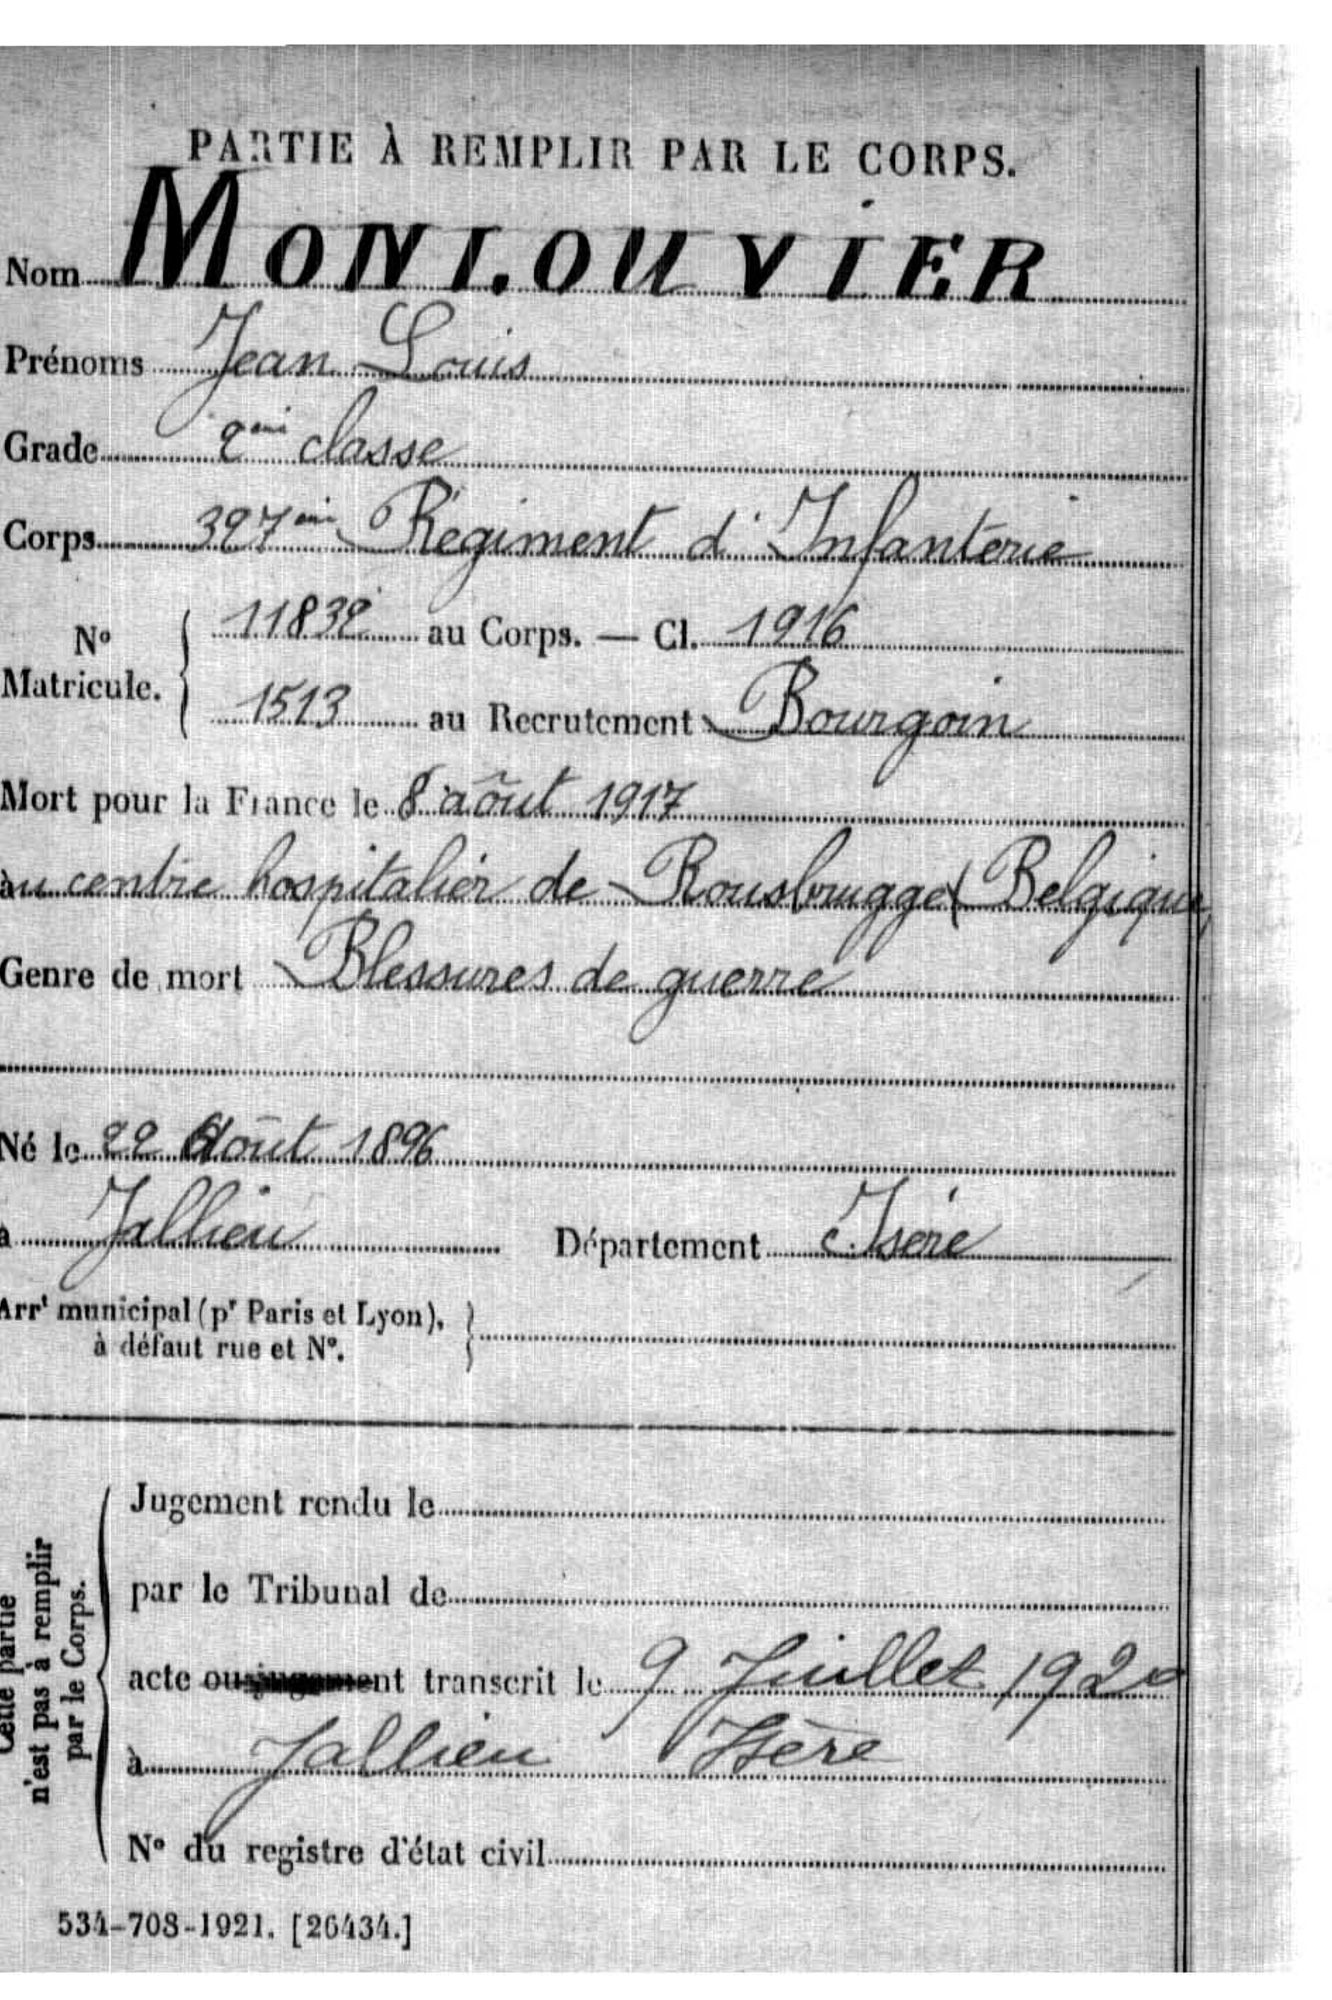 PARTIE À REMPLIR PAR LE CORPS.
Nom MONLOUVIER
Prénoms Jean Louis
Grade 2ème classe
Corps 397ème Régiment d'Infanterie
N° Matricule. 11832 au Corps. — Cl. 1916
1513 au Recrutement Bourgoin
Mort pour la France le 8 août 1917
au centre hospitalier de Rousbrugge (Belgique)
Genre de mort Blessures de guerre
Né le 22 Août 1896
à Jallieu Département Isère
Arrt municipal (pr Paris et Lyon),
à défaut rue et N°.
Cette partie
n'est pas à remplir
par le Corps.
Jugement rendu le
par le Tribunal de
acte ou jugement transcrit le 9 Juillet 1920
à Jallieu Isère
N° du registre d'état civil
534-708-1921. [26434.]